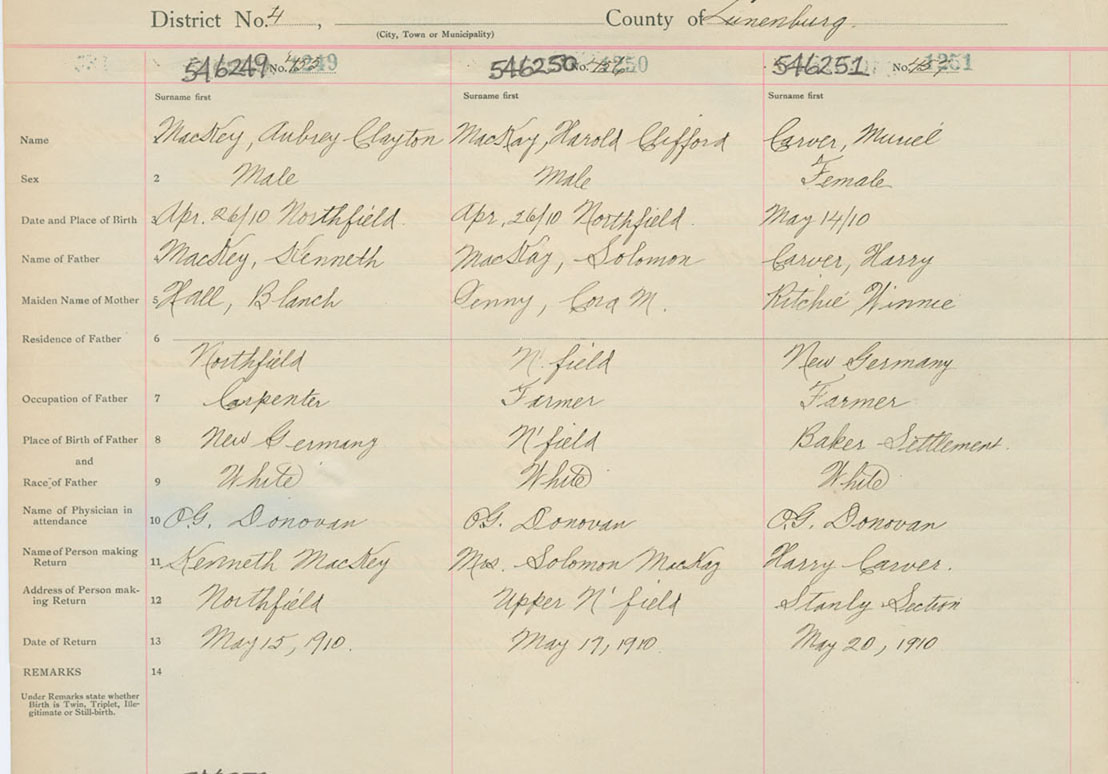 District No. 4, County of Lunenburg.
(City, Town or Municipality)
546249 No. 1249 546250 No. 1250 546251 No. 1251
Surname first Surname first Surname first
Name MacKey, Aubrey Clayton MacKay, Harold Clifford Carver, Muriel
Sex 2 Male Male Female
Date and Place of Birth 3 Apr. 26/10 Northfield. Apr. 26/10 Northfield. May 14/10
Name of Father MacKey, Kenneth MacKay, Solomon Carver, Harry
Maiden Name of Mother 5 Hall, Blanch Penny, Cora M. Ritchie Winnie
Residence of Father 6
Northfield N'field New Germany
Occupation of Father 7 Carpenter Farmer Farmer
Place of Birth of Father 8 New Germany N'field Baker Settlement.
and
Race of Father 9 White White White
Name of Physician in
attendance 10 O.G. Donovan O.G. Donovan O.G. Donovan
Name of Person making
Return 11 Kenneth MacKey Mrs. Solomon MacKay Harry Carver.
Address of Person mak-
ing Return 12 Northfield Upper N'field Stanly Section
Date of Return 13 May 15, 1910. May 17, 1910. May 20, 1910
REMARKS 14
Under Remarks state whether
Birth is Twin, Triplet, Ille-
gitimate or Still-birth.